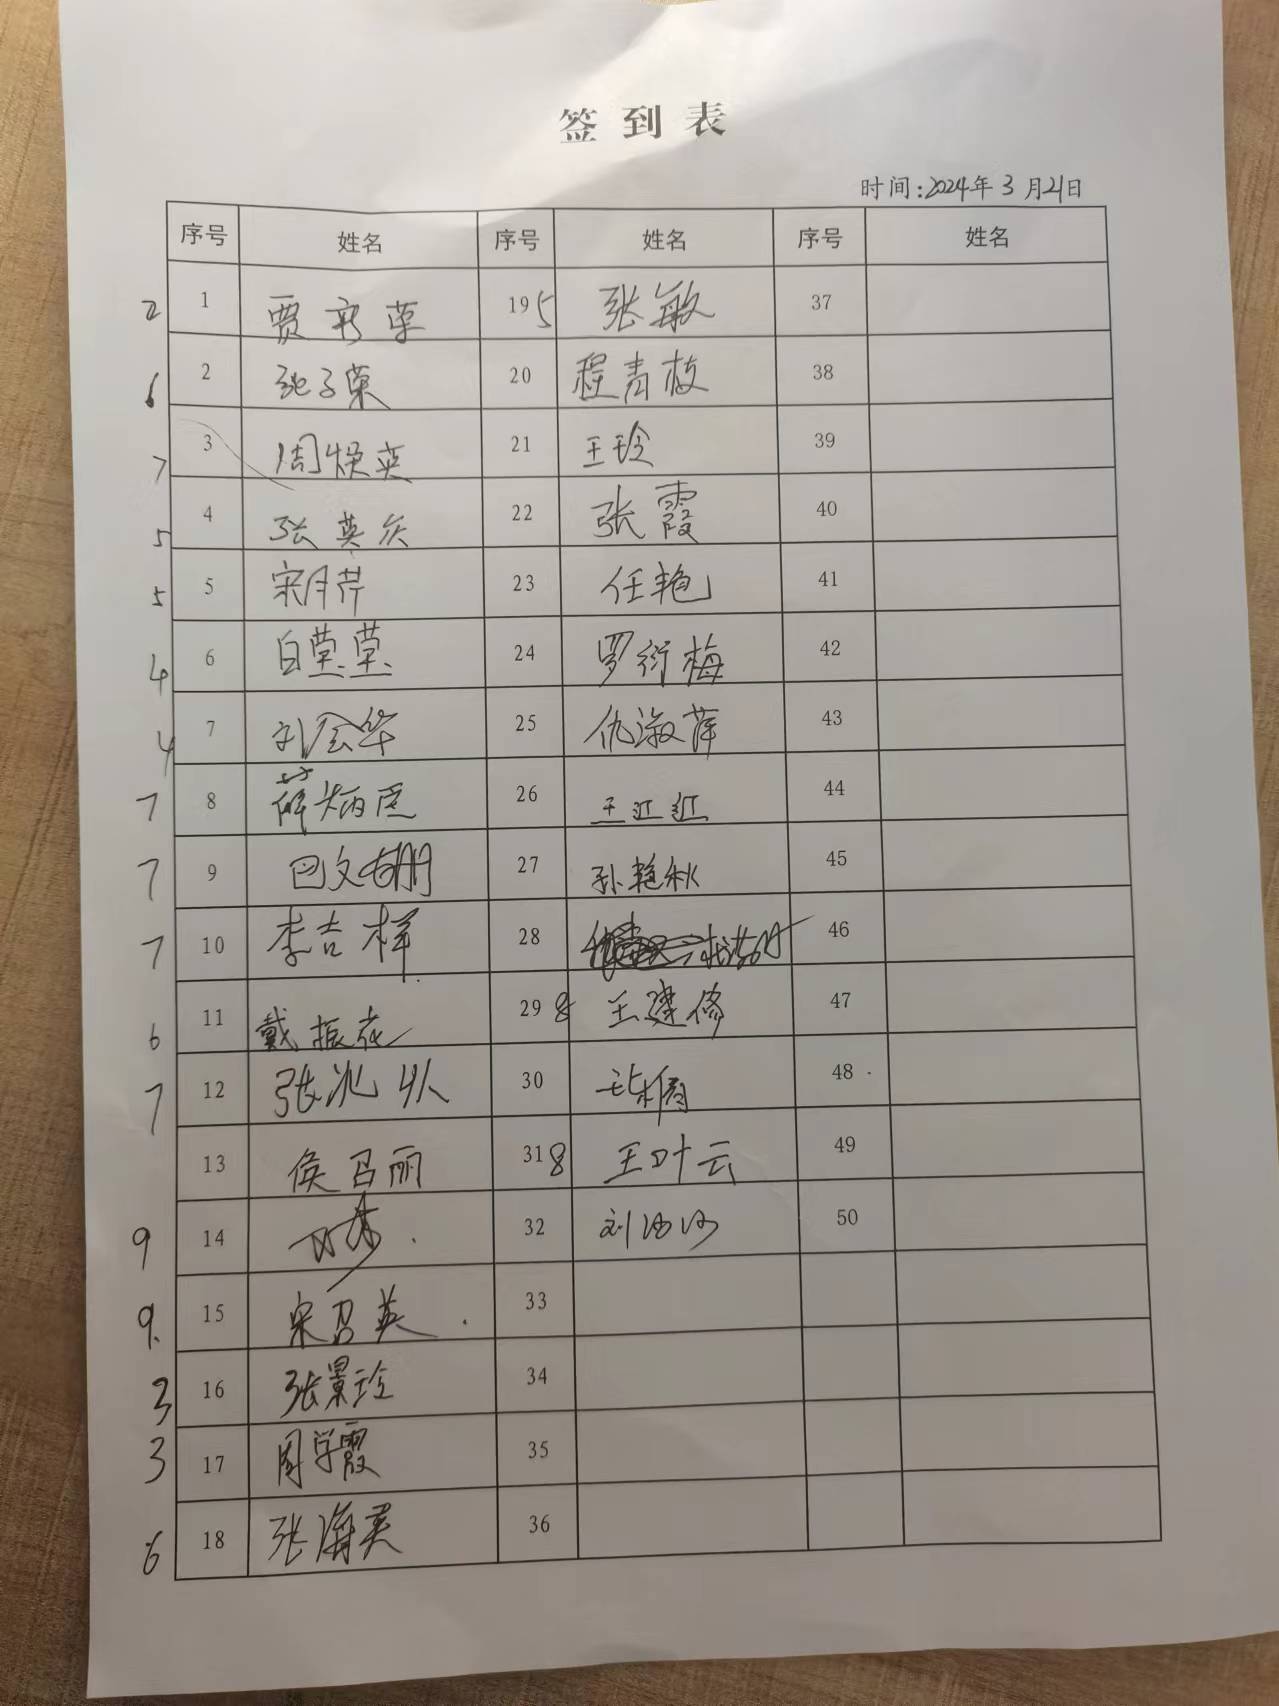 签到表
时间:2024年3月21日
序号 姓名 序号 姓名 序号 姓名
2 1 贾 荣 19 5 张敏 37
6 2 张子荣 20 程青枝 38
7 3 周焕英 21 王玲 39
5 4 张英 22 张霞 40
5 5 宋月芹 23 任艳 41
4 6 白堂堂 24 罗衍梅 42
4 7 刘金华 25 仇淑萍 43
7 8 薛炳 26 王近近 44
7 9 巴文 27 孙艳秋 45
7 10 李吉祥 28 46
6 11 戴振花 29 8 王建修 47
7 12 张兆 30 48
13 侯召丽 31 8 王叶云 49
9 14 32 刘 50
9. 15 宋召英 33
3 16 张景玲 34
3 17 周学霞 35
6 18 张海英 36